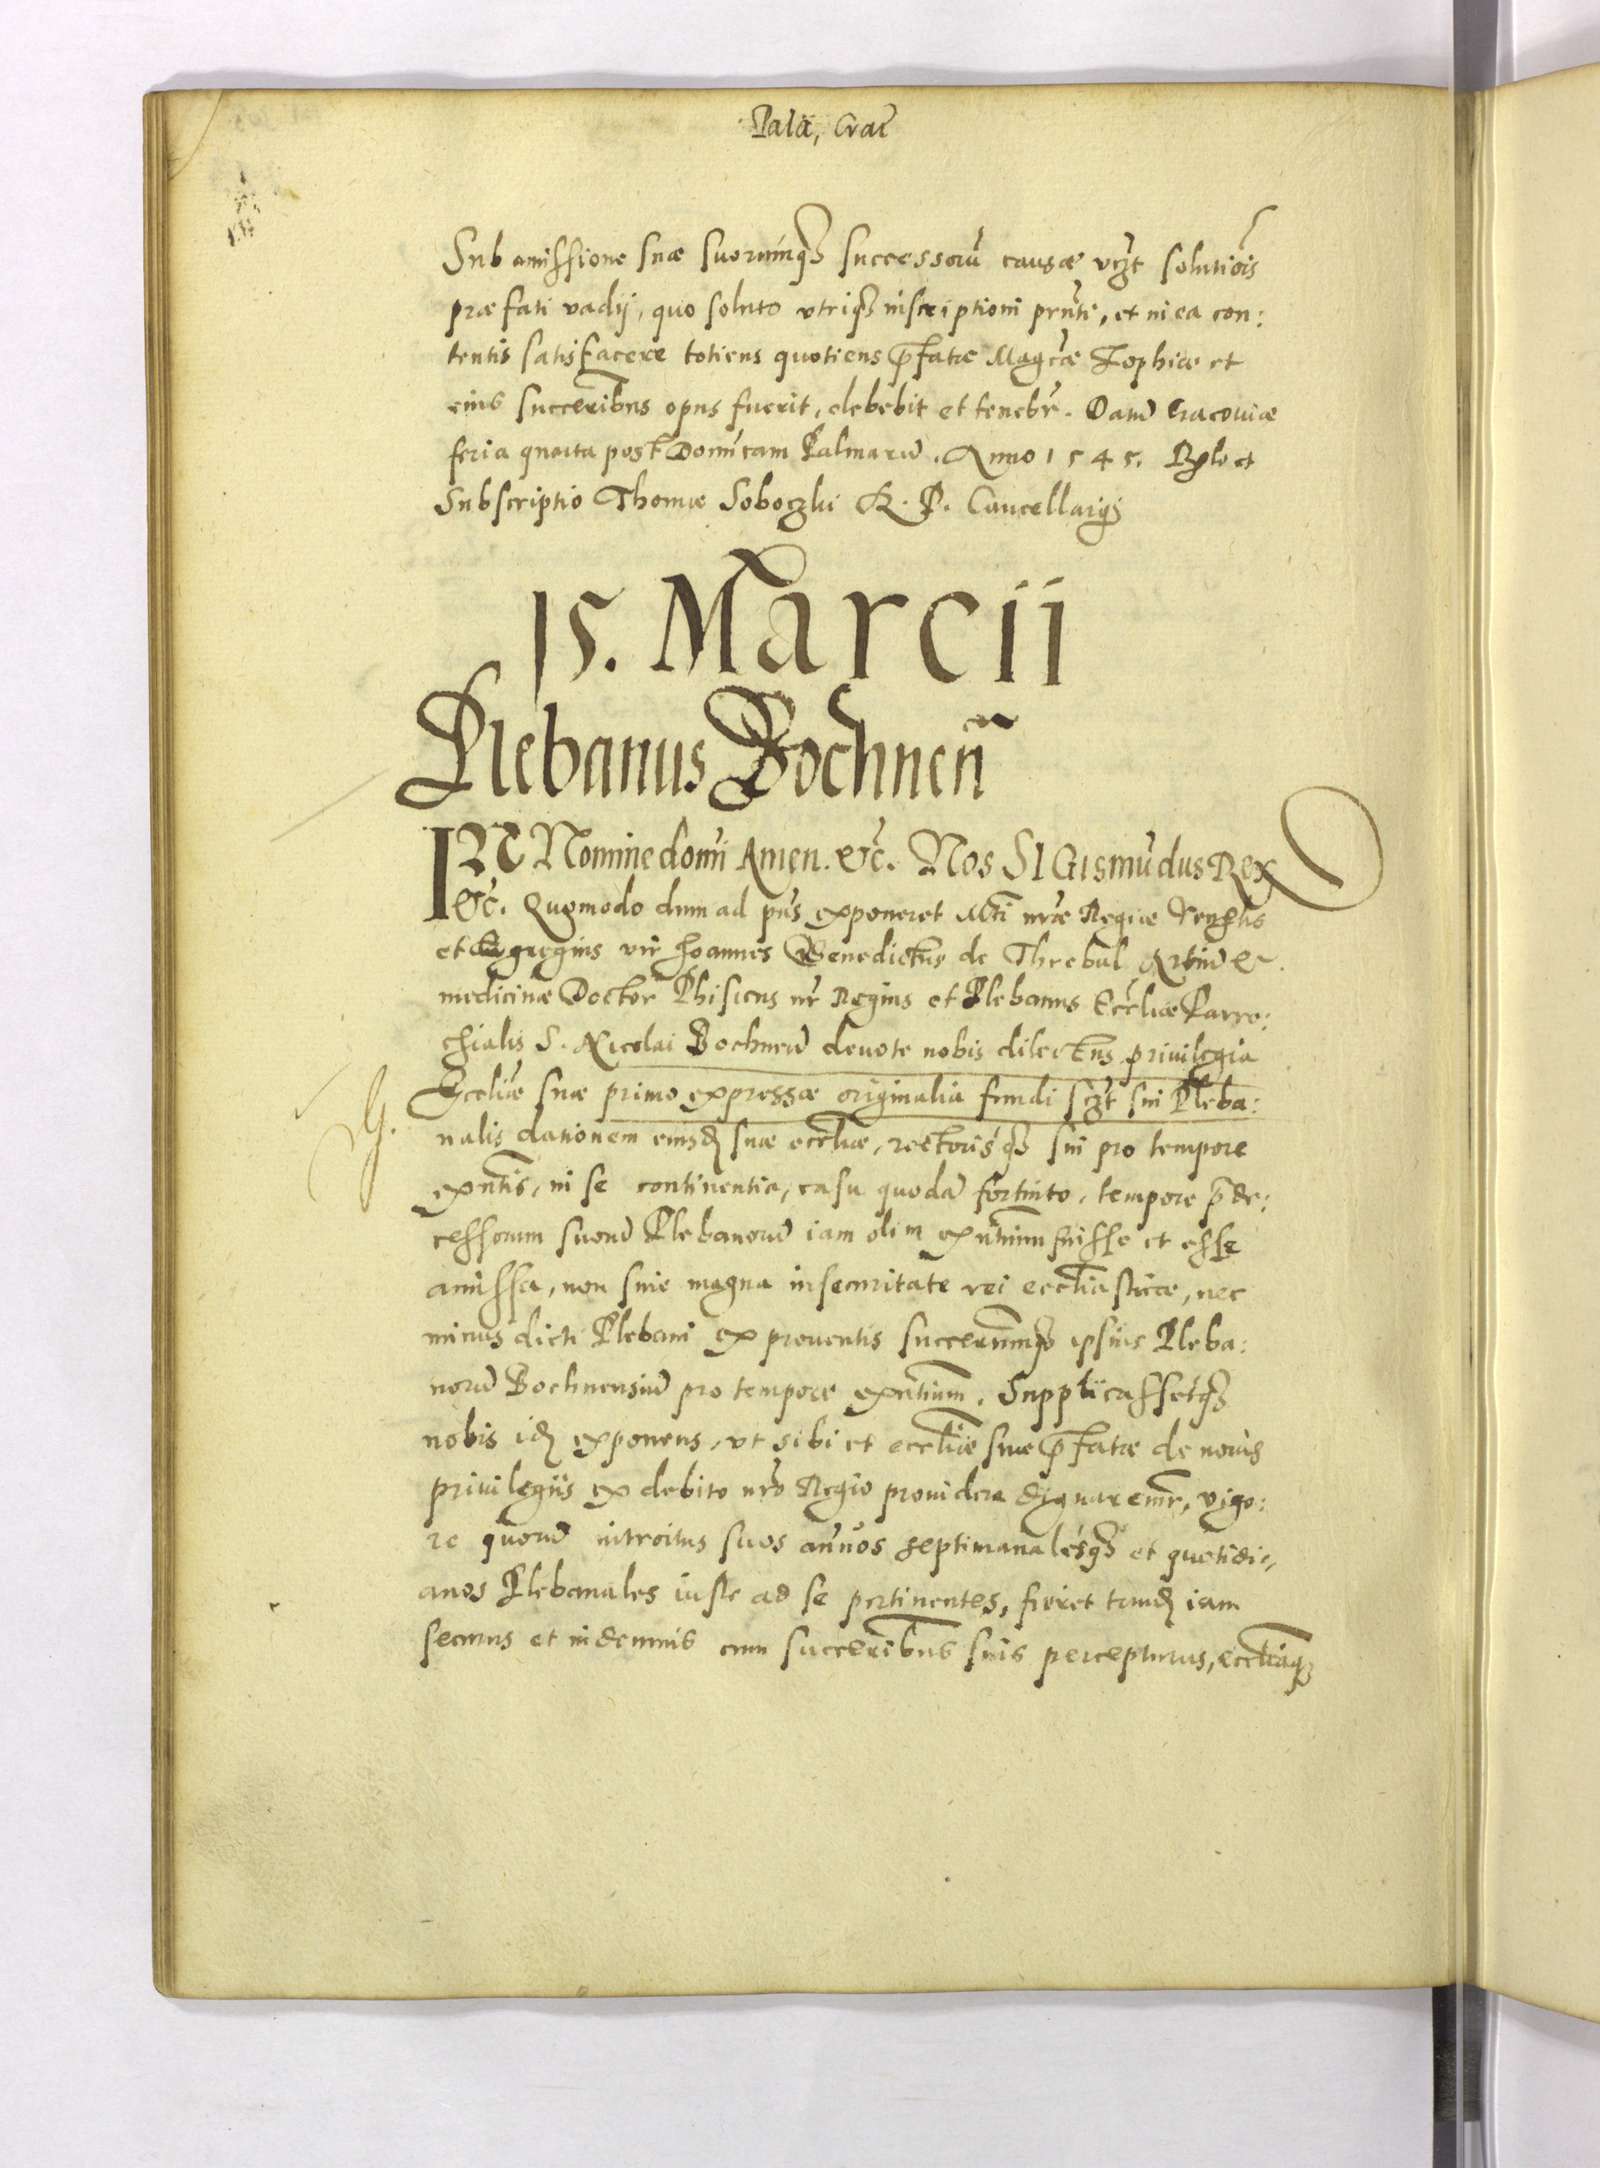 Pala͂, Crac͂
Sub amissione suæ suorumq₃ successoru͂ causæ vcz̃t solutio͂is
præfati vadij, quo soluto vtriq₃ inscriptioni pnti͂, et in ea con:
tentis satisfacere totiens quotiens p̄fatæ Mag͂cæ Zophiæ et
eius succeribus opus fuerit, debebit et tenebr͂. Datu͂ Cracouiæ
feria quarta post Domi͂cam Palmaru͂. Anno 1545. Rglo et
Subscriptio Thomæ Soboczki R. P. Cancellarij
15. Marcii
Plebanus Bochnen͂
IN Nomine domi͂ Amen. &c͂. Nos SIGismu͂dus Rex
&c͂. Quomodo dum ad pn͂s exponeret Mti͂ nr͂æ Regiæ Venlis
et Egregius vir Joannes Benedictus de Threbul Artiu͂ &
medicinæ Doctor Phisicus nr͂ Regius et Plebanus Eccl͂iæ Parro:
chialis S. Nicolai Bochneñ deuote nobis dilectus priuilegia
Eccl͂iæ suæ primo expressæ originalia fundi scz̃t sui Pleba:
nalis dationem eiusd͂ suæ eccl͂iæ, rectoris q₃ sui pro tempore
exn͂tis, in se continentia, casu quoda͂ fortuito, tempore p̄de:
cessorum suoru͂ Plebanoru͂ iam olim exn͂tium fuisse et esse
amissa, non sine magna insecuritate rei eccl͂iasticæ, nec
minus dicti Plebani ex prouentis succerumq₃ ipsius Pleba:
noru͂ Bochnensiu͂ pro tempore exn͂tium. Supplicassetq₃
nobis id͂ exponens, vt sibi et eccl͂iæ suæ p̄fatæ de nouis
priuilegiis ex debito nr͂o Regio prouidere dignaremr͂, vigo:
re quoru͂ introitus suos an͂uos septimanalesq₃ et quotidi,
anos Plebanales iuste ad se pertinentes, fieret tand͂ iam
securus et indemnis cum succeribus suis percepturus, eccl͂iaq₃